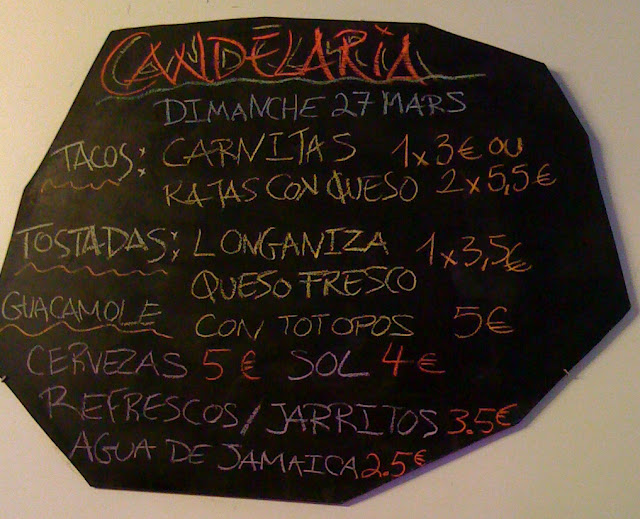 CANDELARIA
DIMANCHE 27 MARS
TACOS: CARNITAS 1x3€ OU
RAJAS CON QUESO 2x5,5€
TOSTADAS: LONGANIZA 1x3,5€
QUESO FRESCO
GUACAMOLE CON TOTOPOS 5€
CERVEZAS 5€ SOL 4€
REFRESCOS/JARRITOS 3.5€
AGUA DE JAMAICA 2.5€